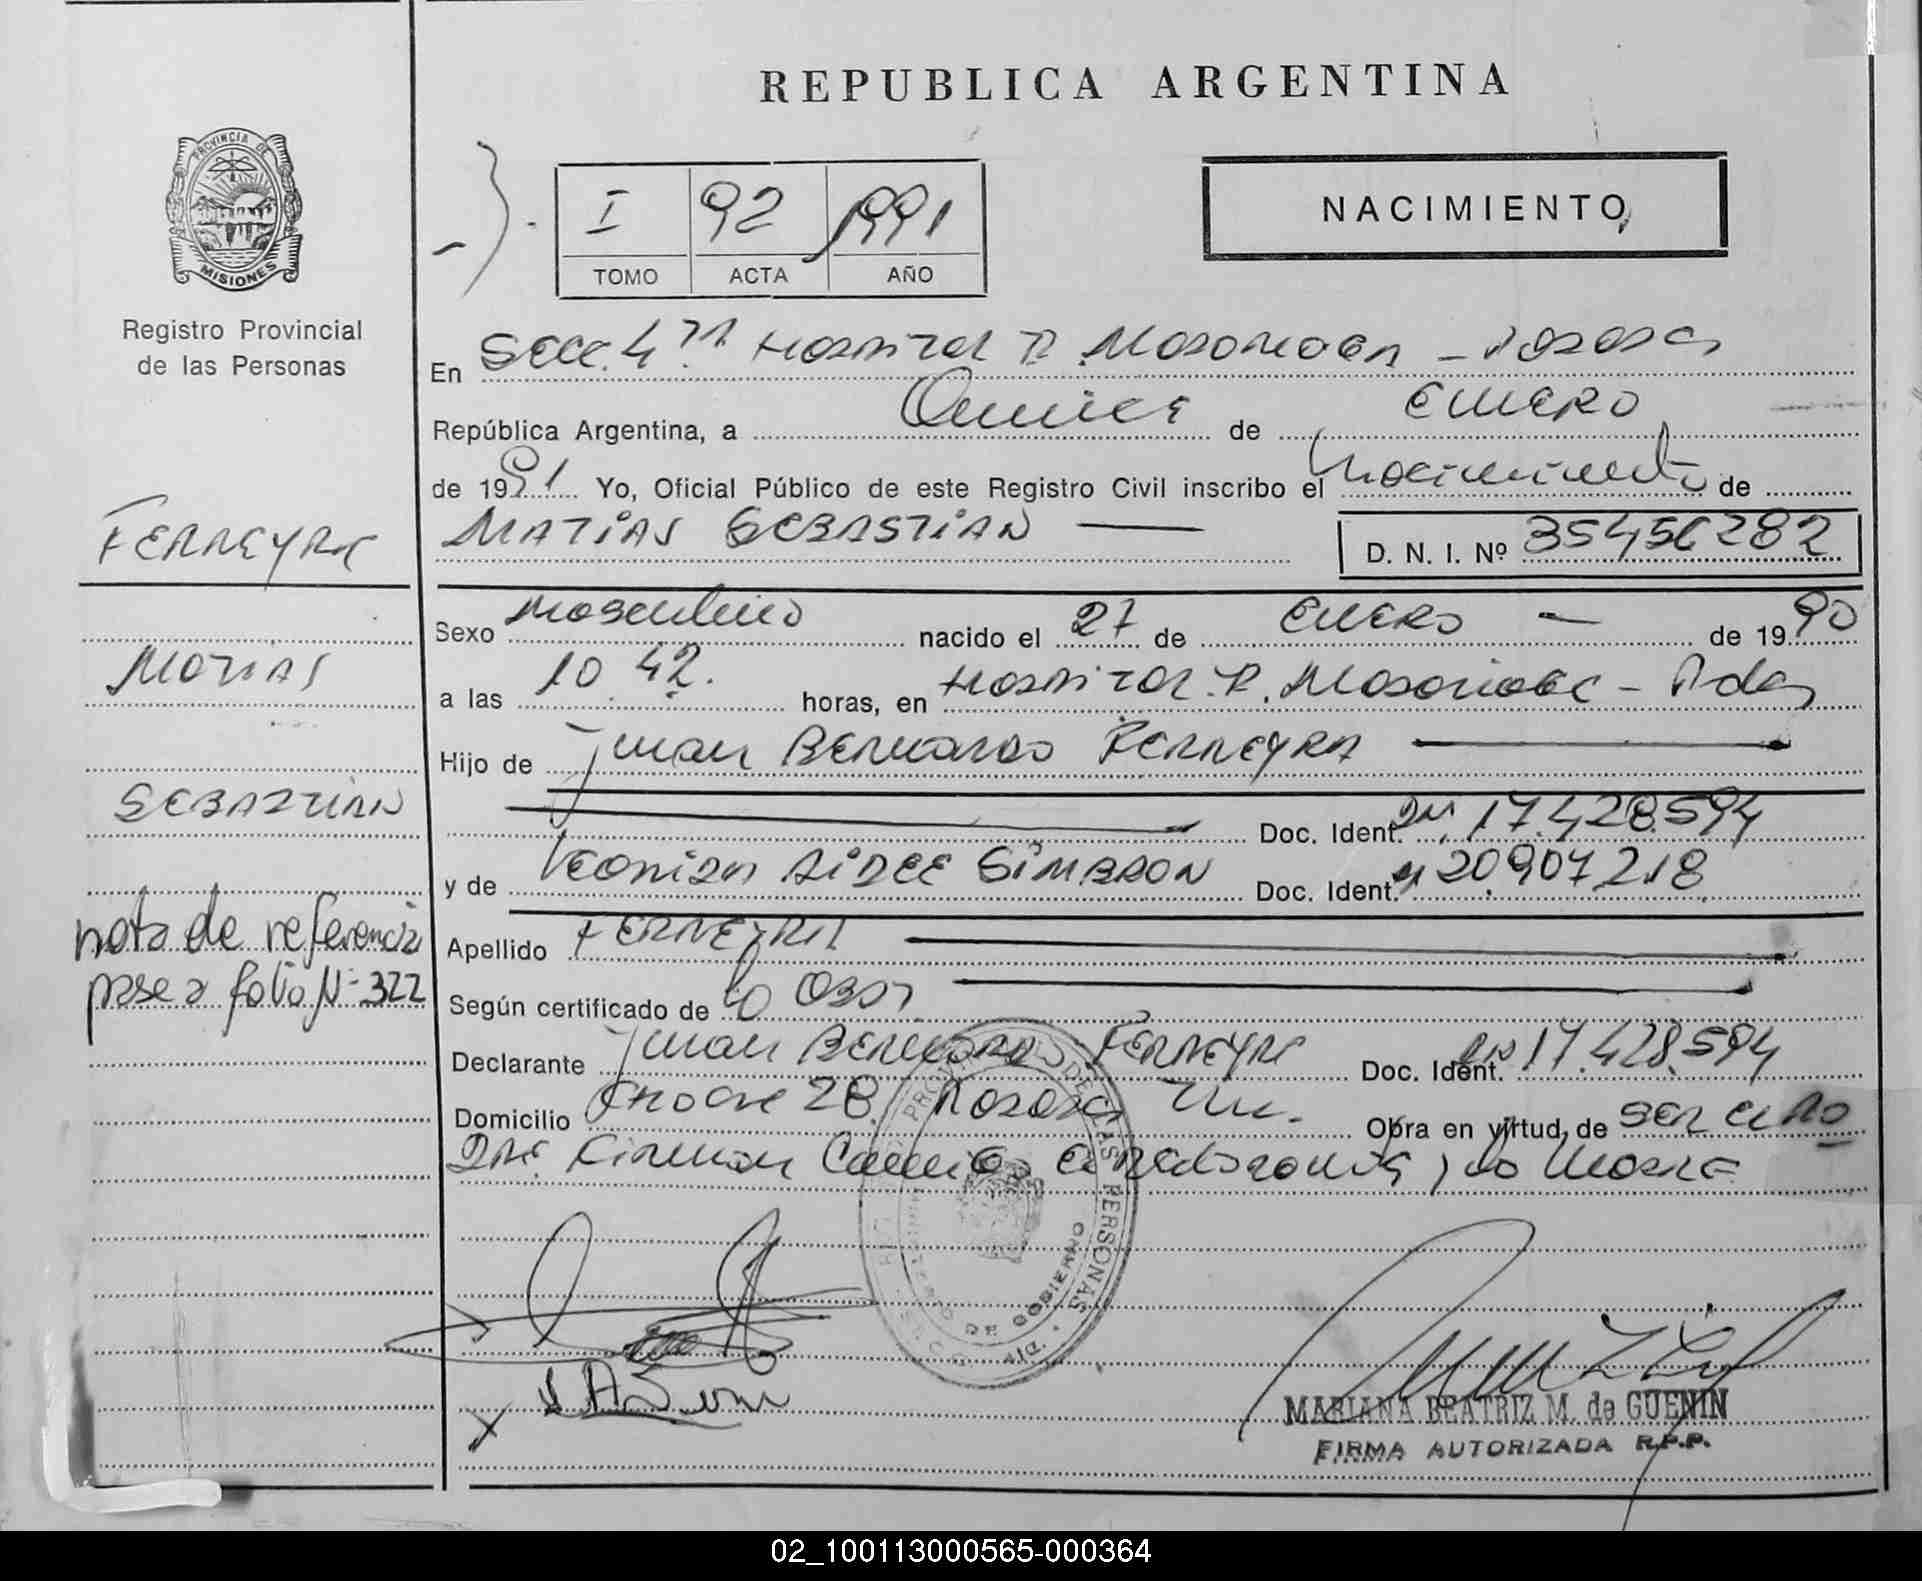 REPUBLICA ARGENTINA
PROVINCIA DE MISIONES
Registro Provincial
de las Personas
I 92 1991
TOMO ACTA AÑO
NACIMIENTO
En Secc. 4ta Hospital R. Madariaga - Posadas
República Argentina, a Quince de ENERO
de 1991 Yo, Oficial Público de este Registro Civil inscribo el nacimiento de
MATIAS SEBASTIAN D. N. I. Nº 35456282
Sexo masculino nacido el 27 de ENERO de 1990
a las 10 42. horas, en Hospital R. Madariaga - Pdas
Hijo de Juan BERNARDO FERREYRA
Doc. Ident. 17.428.594
y de AIDEE Doc. Ident. 20.907.218
Apellido FERREYRA
Según certificado de
Declarante Juan BERNARDO FERREYRA Doc. Ident. 17.428.594
Domicilio 28 Posadas Mnes. Obra en virtud de ser
la madre
FERREYRA
MATIAS
SEBASTIAN
nota de referencia
pase a folio Nº 322
PROVINCIAL DE LAS PERSONAS
DE GOBIERNO
MARIANA BEATRIZ M. de GUENIN
FIRMA AUTORIZADA R.P.P.
02_100113000565-000364